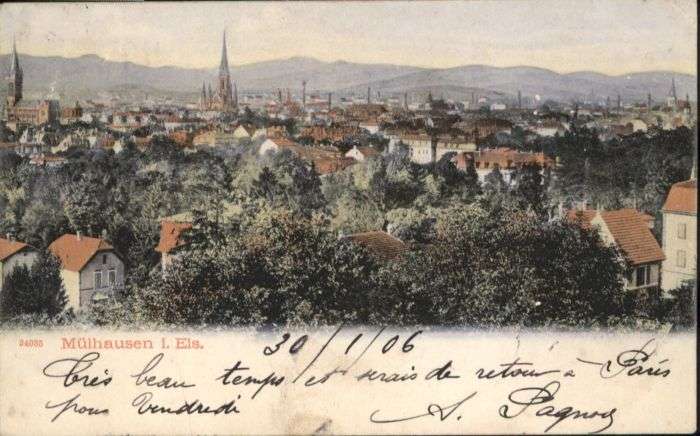 24085 Mülhausen i. Els.
30/1/06
Très beau temps et serais de retour à Paris
pour Vendredi